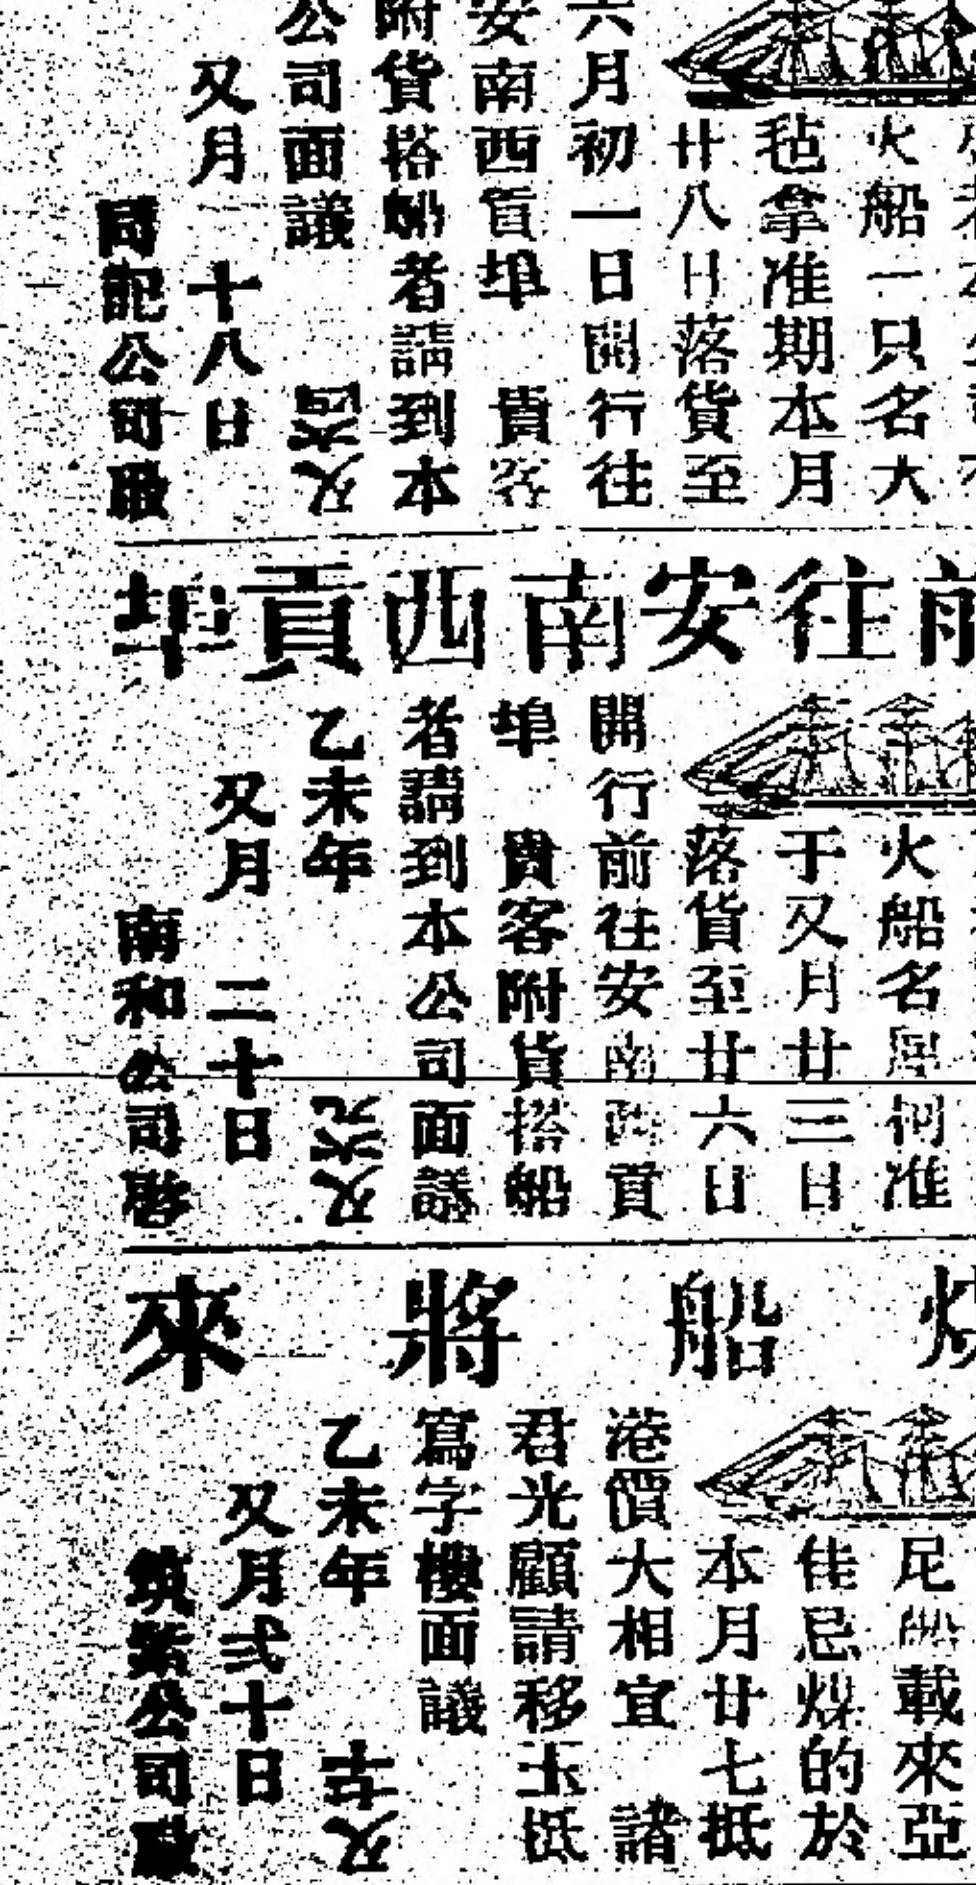 火船一只名大
毡拿准期本月
廿八日落貨至
六月初一日開行往
安南西貢埠　貴客
附貨搭船者請到本
公司面議
又月　十八日
記公司啟
前往安南西貢埠
火船名　何准
于又月廿三日
落貨至廿六日
開行前往安南西貢
埠　貴客附貨搭船
者請到本公司面議
乙未年
又月　二十日
南和公司啓
船將來
尼船載來亞
佳忌煤的於
本月廿七抵
港價大相宜　諸
君光顧請移玉抵
寫字樓面議
乙未年
又月弍十日
公司啟